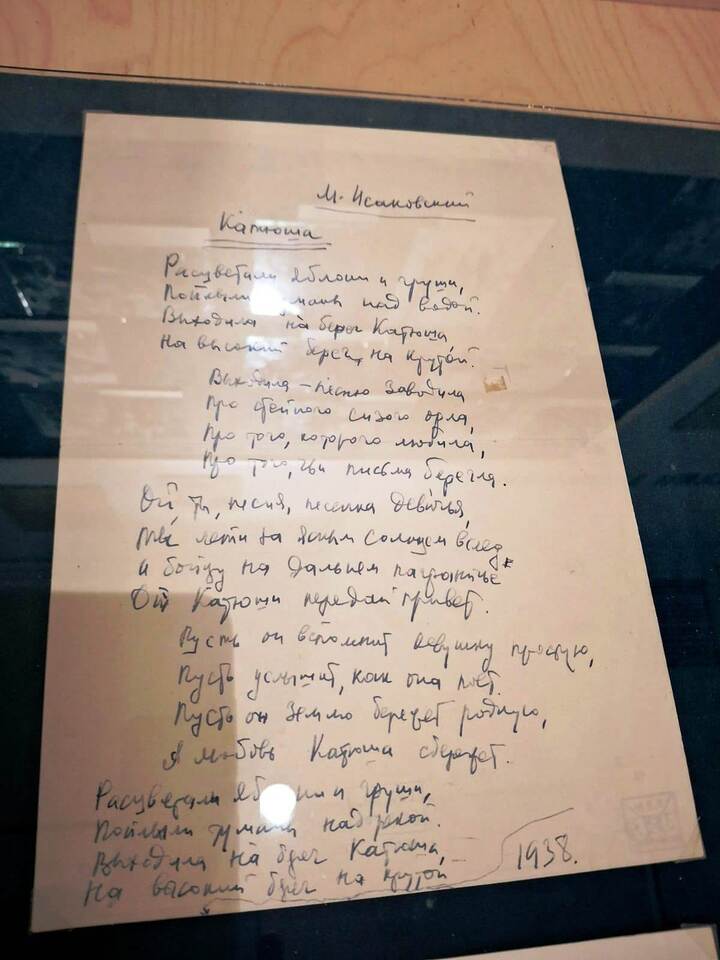 М. Исаковский
Катюша
Расцветали яблони и груши,
Поплыли туманы над водой.
Выходила на берег Катюша
На высокий берег, на крутой.
Выходила – песню заводила
Про степного сизого орла,
Про того, которого любила,
Про того, чьи письма берегла.
Ой, ты, песня, песенка девичья,
Ты лети за ясным солнцем вслед
И бойцу на дальнем пограничье
От Катюши передай привет.
Пусть он вспомнит девушку простую,
Пусть услышит, как она поет.
Пусть он землю бережет родную,
А любовь Катюша сбережет.
Расцветали яблони и груши,
Поплыли туманы над рекой.
Выходила на берег Катюша,
На высокий берег на крутой
1938.